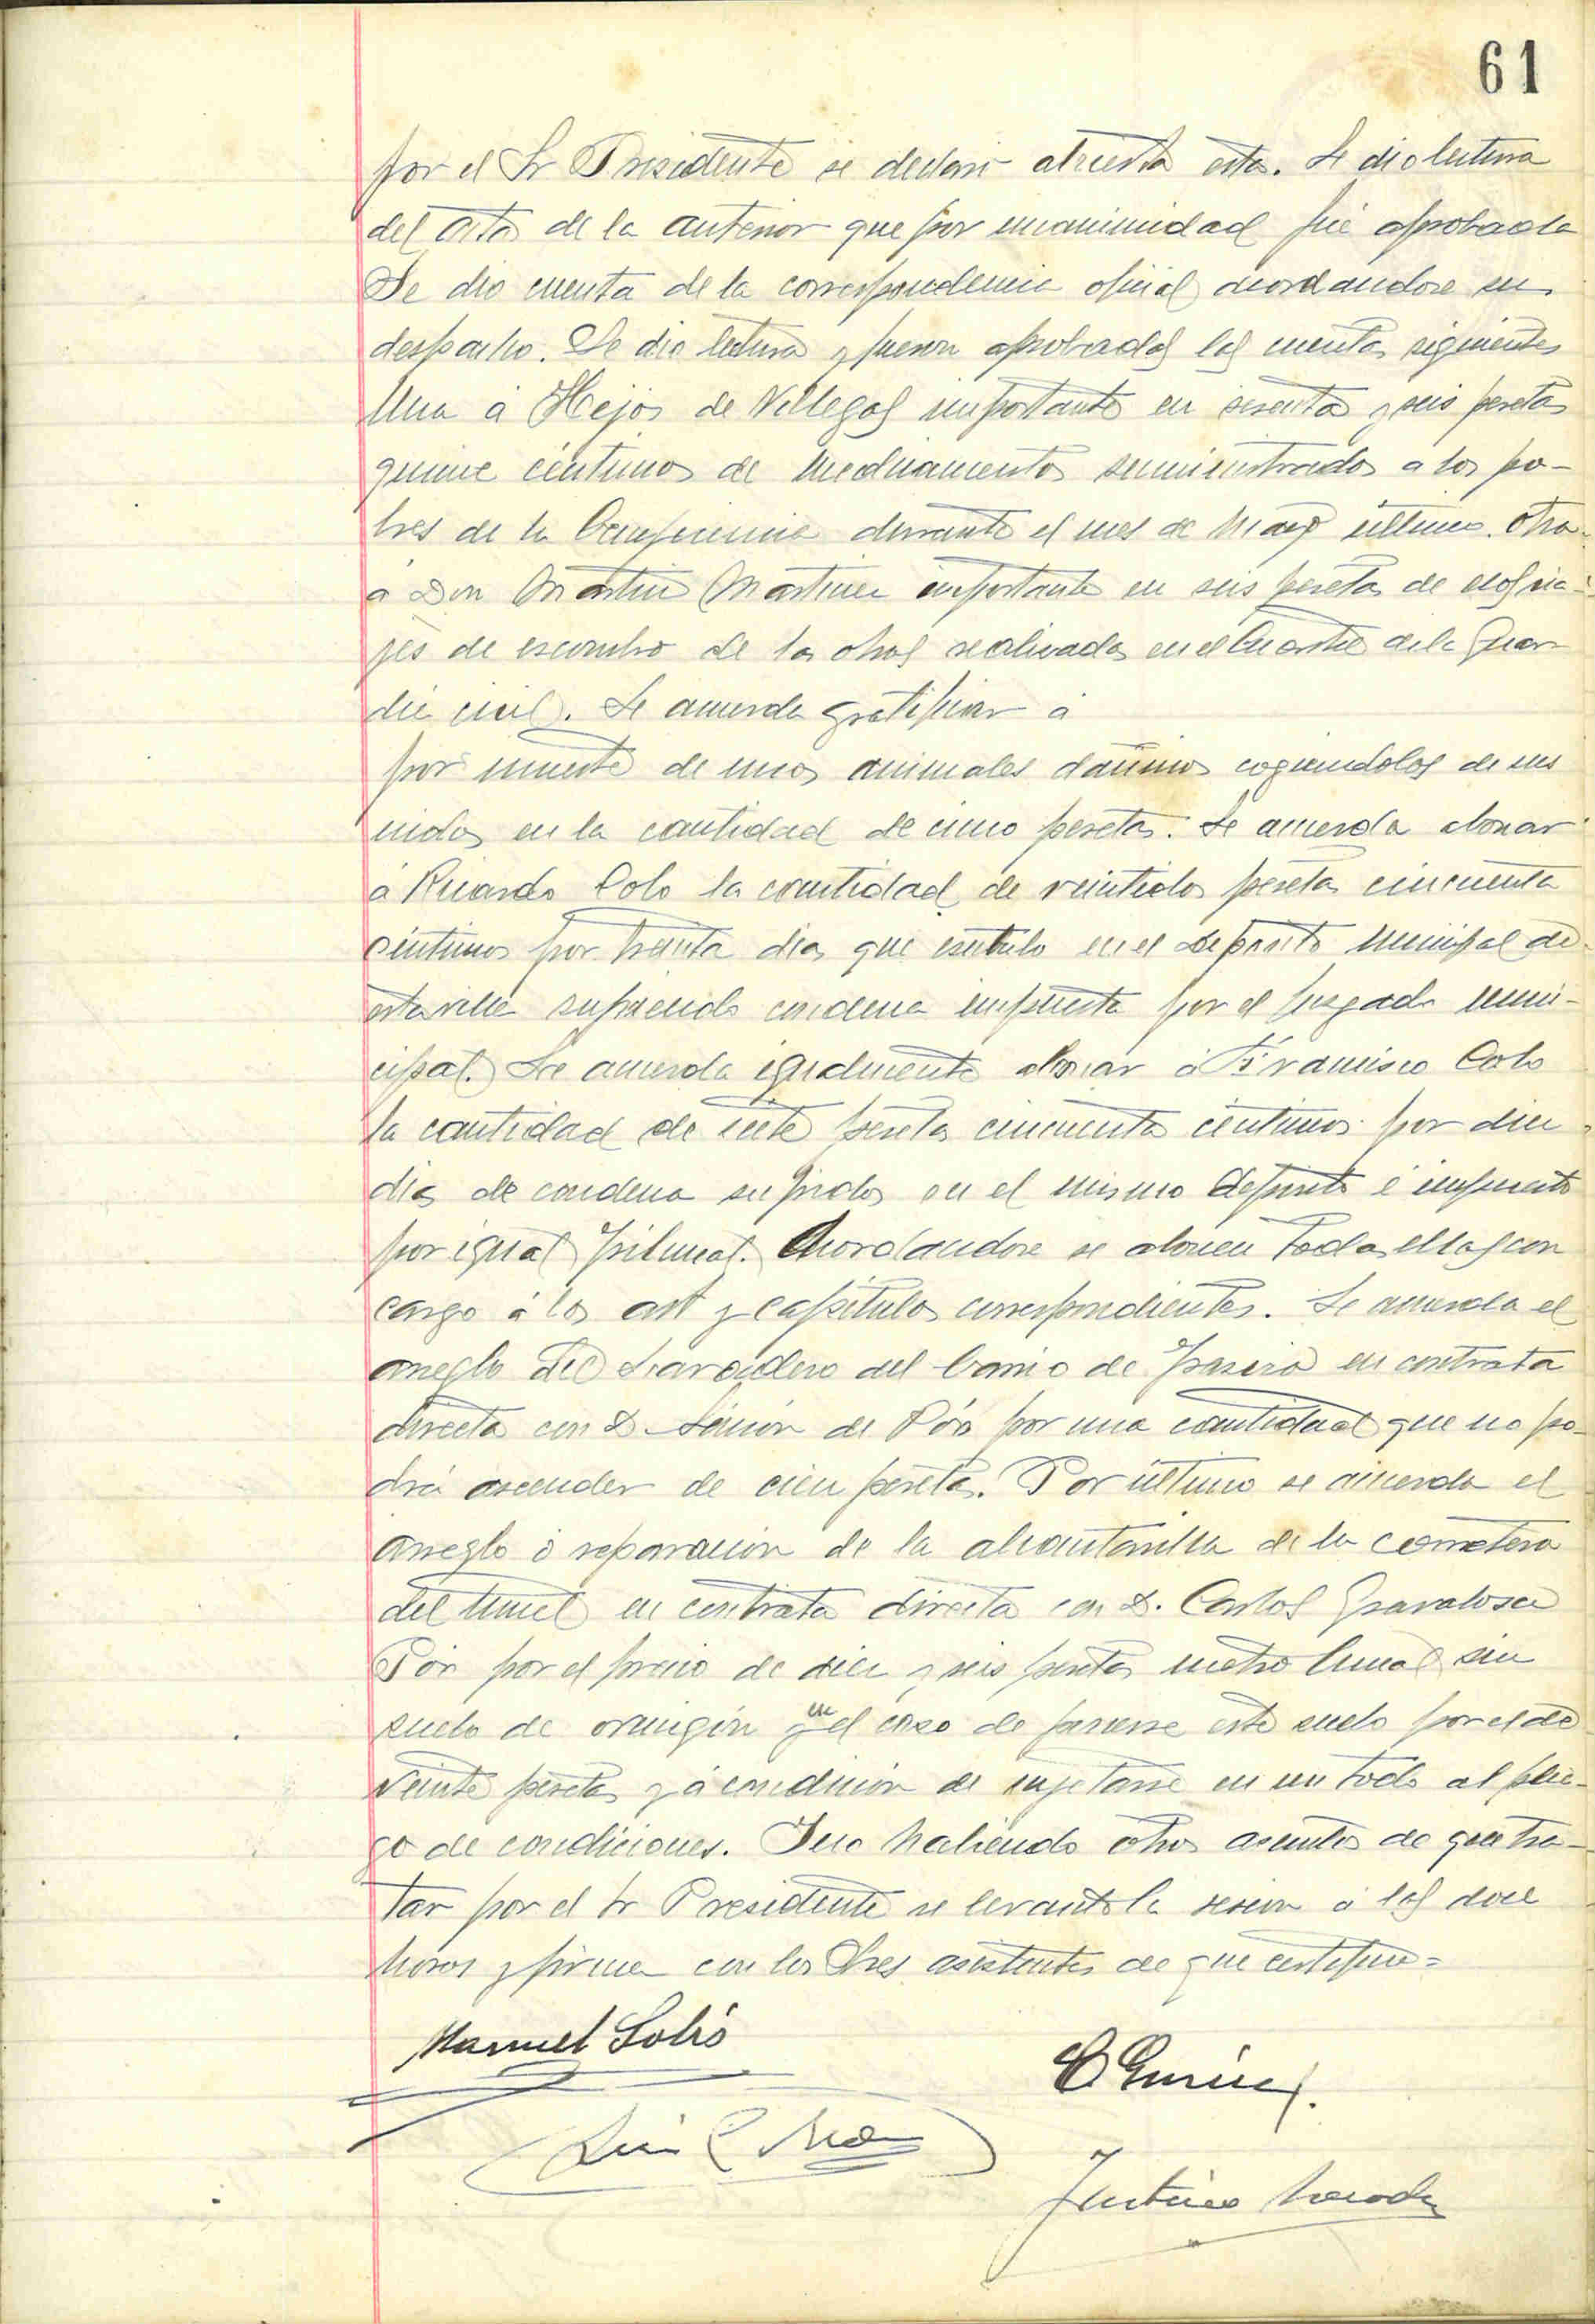 61
por el Sr Presidente se declaró abierta esta. Se dio lectura
del acta de la anterior que por unanimidad fué aprobada
Se dio cuenta de la correspondencia oficial acordandose su
despacho. Se dio lectura y fueron aprobadas las cuentas siguientes
Una á Hijos de Villegas importante en sesenta y seis pesetas
quince céntimos de medicamentos suministrados a los po-
bres de la Beneficencia durante el mes de Mayo último. Otra
a Don Martin Martinez importante en seis pesetas de
jes de escombro de las obras realizadas en el Cuartel de la Guar
dia civil. Se acuerda gratificar á
por muerte de unos animales dañinos cogiendolos de sus
nidos en la cantidad de cinco pesetas. Se acuerda abonar
á Ricardo Colo la cantidad de veintidos pesetas cincuenta
céntimos por treinta dias que estubo en el deposito municipal de
esta villa sufriendo condena impuesta por el juzgado muni-
cipal. Se acuerda igualmente abonar á Francisco Colo
la cantidad de siete pesetas cincuenta céntimos por diez
dias de condena sufridos en el mismo deposito é impuesta
por igual tribunal. Acordandose se abonen todas ellas con
cargo á los art y capitulos correspondientes. Se acuerda el
arreglo del Lavadero del barrio de en contrata
directa con D. Simon de Pós por una cantidad que no po-
drá ascender de cien pesetas. Por último se acuerda el
arreglo ó reparacion de la alcantarilla de la carretera
del tunel en contrata directa con D. Carlos Gravalosa
Pós por el precio de diez y seis pesetas metro lineal sin
suelo de ormigón y en el caso de ponerse este suelo por el de
veinte pesetas y á condicion de sujetarse en un todo al plie-
go de condiciones. Y no habiendo otros asuntos de que tra-
tar por el Sr Presidente se levantó la sesion á las doce
horas y firma con los Sres asistentes de que certifico=
Manuel Solis